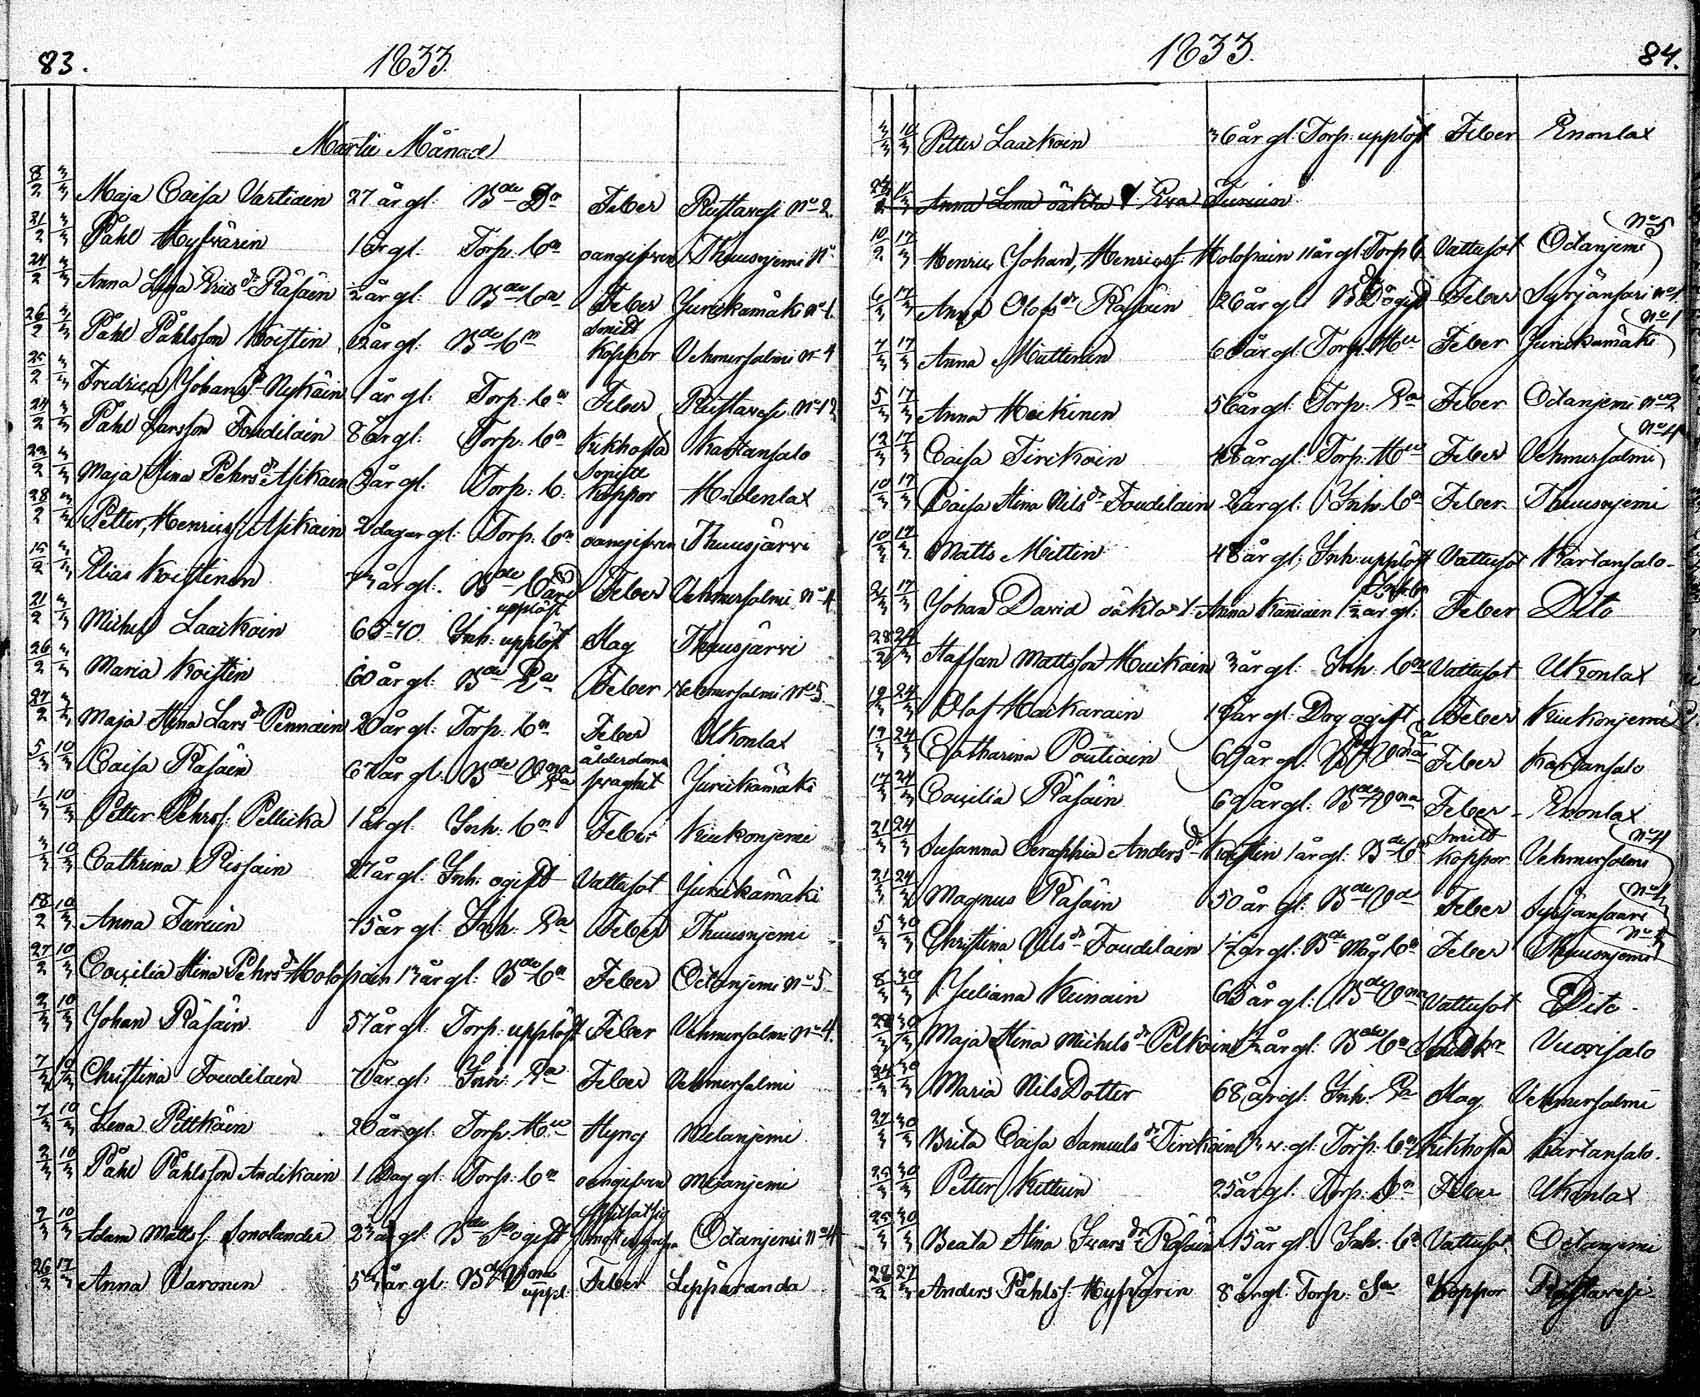 83. 1833.
Martii Månad
8/2 3/3 Maja Caisa Vartiain 27 år gl: Bde Dr Feber Ristavesi No 2.
21/2 3/3 Påhl Hyfvärin 1 år gl: Torp: bn oangifven Thuusnjemi No
24/2 3/3 Anna Lena Erics dr Räsäin 1/2 år gl: Bde bn Feber Jurickamäki No 1.
26/2 3/3 Påhl Påhlsson Koistin 2 år gl: Bde bn Smitt Koppor Vehmersalmi No 4
25/2 3/3 Fredrica Johans dr Nykäin 1 år gl: Torp: bn Feber Ristavesi No 12
24/2 3/3 Påhl Larsson Foudilain 8 år gl: Torp: bn Kikhosta Kartansalo
23/2 3/3 Maja Stina Pehrs dr Asikain 2 år gl: Torp: b: Smitt Koppor Hidenlax
28/2 3/3 Petter, Henrics: Asikain 2 dagar gl: Torp: bn oangifven Thuusjärvi
15/2 3/3 Elias Koistinen 73 år gl: Bde upplöst Feber Vehmersalmi No 4
21/2 3/3 Michel Laackoin 65-40 Inh: upplöst Slag Thuusjärvi
26/2 3/3 Maria Koistin 60 år gl: Bde Ea Feber Vehmersalmi No 5
27/2 3/3 Maja Stina Lars dr Pennain 20 år gl: Torp: bn Feber Ukonlax
5/3 10/3 Caisa Räsäin 67 år gl: Bde ålderdoms svaghet Jurickamäki
1/3 10/3 Petter Pehrs: Pellicka 1 år gl: Inh: bn Feber Kiukonjemi
3/3 10/3 Cathrina Rissain 27 år gl: Inh: ogift Vattusot Jurickamäki
18/2 10/3 Anna Turuin 75 år gl: Inh: Ea Feber Thuusnjemi
27/2 10/3 Cecilia Stina Pehrs dr Holopain 13 år gl: Bde bn Feber Oetanjemi No 5
2/3 10/3 Johan Räsäin 57 år gl: Torp: upplöst Feber Vehmersalmi No 4.
7/3 10/3 Christina Foudilain 70 år gl: Inh: Ea Feber Vehmersalmi
7/3 10/3 Lena Pittkäin 20 år gl: Torp: Hu Styng Melanjemi
2/3 10/3 Påhl Påhlsson Andikain 1 Dag gl: Torp: bn oangifven Melanjemi
2/3 10/3 Adam Matts: Smolander 23 år gl: Bde So ogift Oetanjemi No 4
26/2 17/3 Anna Varonen 53 år gl: Bde uppl. Feber Lepparanda
1833. 84.
3/3 10/3 Petter Laackoin 36 år gl: Torp: upplöst Feber Enonlax
Anna Lena oäkta Eva Turuin
10/3 17/3 Henric Johan, Henricss: Holopain 11 år gl: Torp b Vattusot Oetanjemi No 5
17/3 Anna Olofs dr Räsäin 26 år gl: Bde ogift Feber Syrjänsari No 1
7/3 17/3 Anna Mattinen år gl: Torp: Hu Feber Jurickamäki No 1
5/3 17/3 Anna Heikinen 56 år gl: Torp: Ea Feber Oetanjemi No 2
12/3 17/3 Caisa Tirikoin 48 år gl: Torp: Hu Feber Vehmersalmi No 4
10/3 17/3 Caisa Stina Nils dr Foudilain 2 år gl: Inh: bn Feber Thuusnjemi
10/3 17/3 Matts Mittin 48 år gl: Inh: upplöst Vattusot Kartansalo
2/3 17/3 Johan David oäkta Anna Kaniain 1 1/2 år gl: Feber Dito
28/2 24/3 Staffan Mattsson Muikain 3 år gl: Inh: bn Vattusot Ukonlax
19/3 24/3 Olof Hackarain 19 år gl: Dog ogift Feber Kiukonjemi
19/3 24/3 Catharina Poutiain 60 år gl: Bde Feber Kartansalo
17/3 24/3 Cecilia Räsäin 69 år gl: Bde Feber Enonlax
21/3 24/3 Susanna Seraphia Anders dr Koistin 1 år gl: Bde bn Smitt Koppor Vehmersalmi No 4
21/3 24/3 Magnus Räsäin 50 år gl: Bde Feber Syrjänsaari No 1
5/3 30/3 Christina Nils dr Foudilain 1 1/2 år gl: Bde Måg bn Feber Thuusnjemi
8/3 30/3 Juliana Keinain 63 år gl: Bde Vattusot Dito.
28/3 30/3 Maja Stina Michels dr Pelkoin år gl: Bde bn Vuorisalo
24/3 30/3 Maria Nils Dotter 68 år gl: Inh: Ea Slag Vehmersalmi
27/3 30/3 Brita Caisa Samuels dr Tirikoin gl: Torp: bn Kikhosta Kartansalo.
25/3 30/3 Petter Kettuin 25 år gl: Torp: Feber Ukonlax
25/3 30/3 Beata Stina Ivars dr Räsäin 15 år gl: Inh: bn Vattusot Oetanjemi
28/2 27/3 Anders Påhls: Hyfvärin 8 år gl: Torp: Sn Koppor Ristavesi